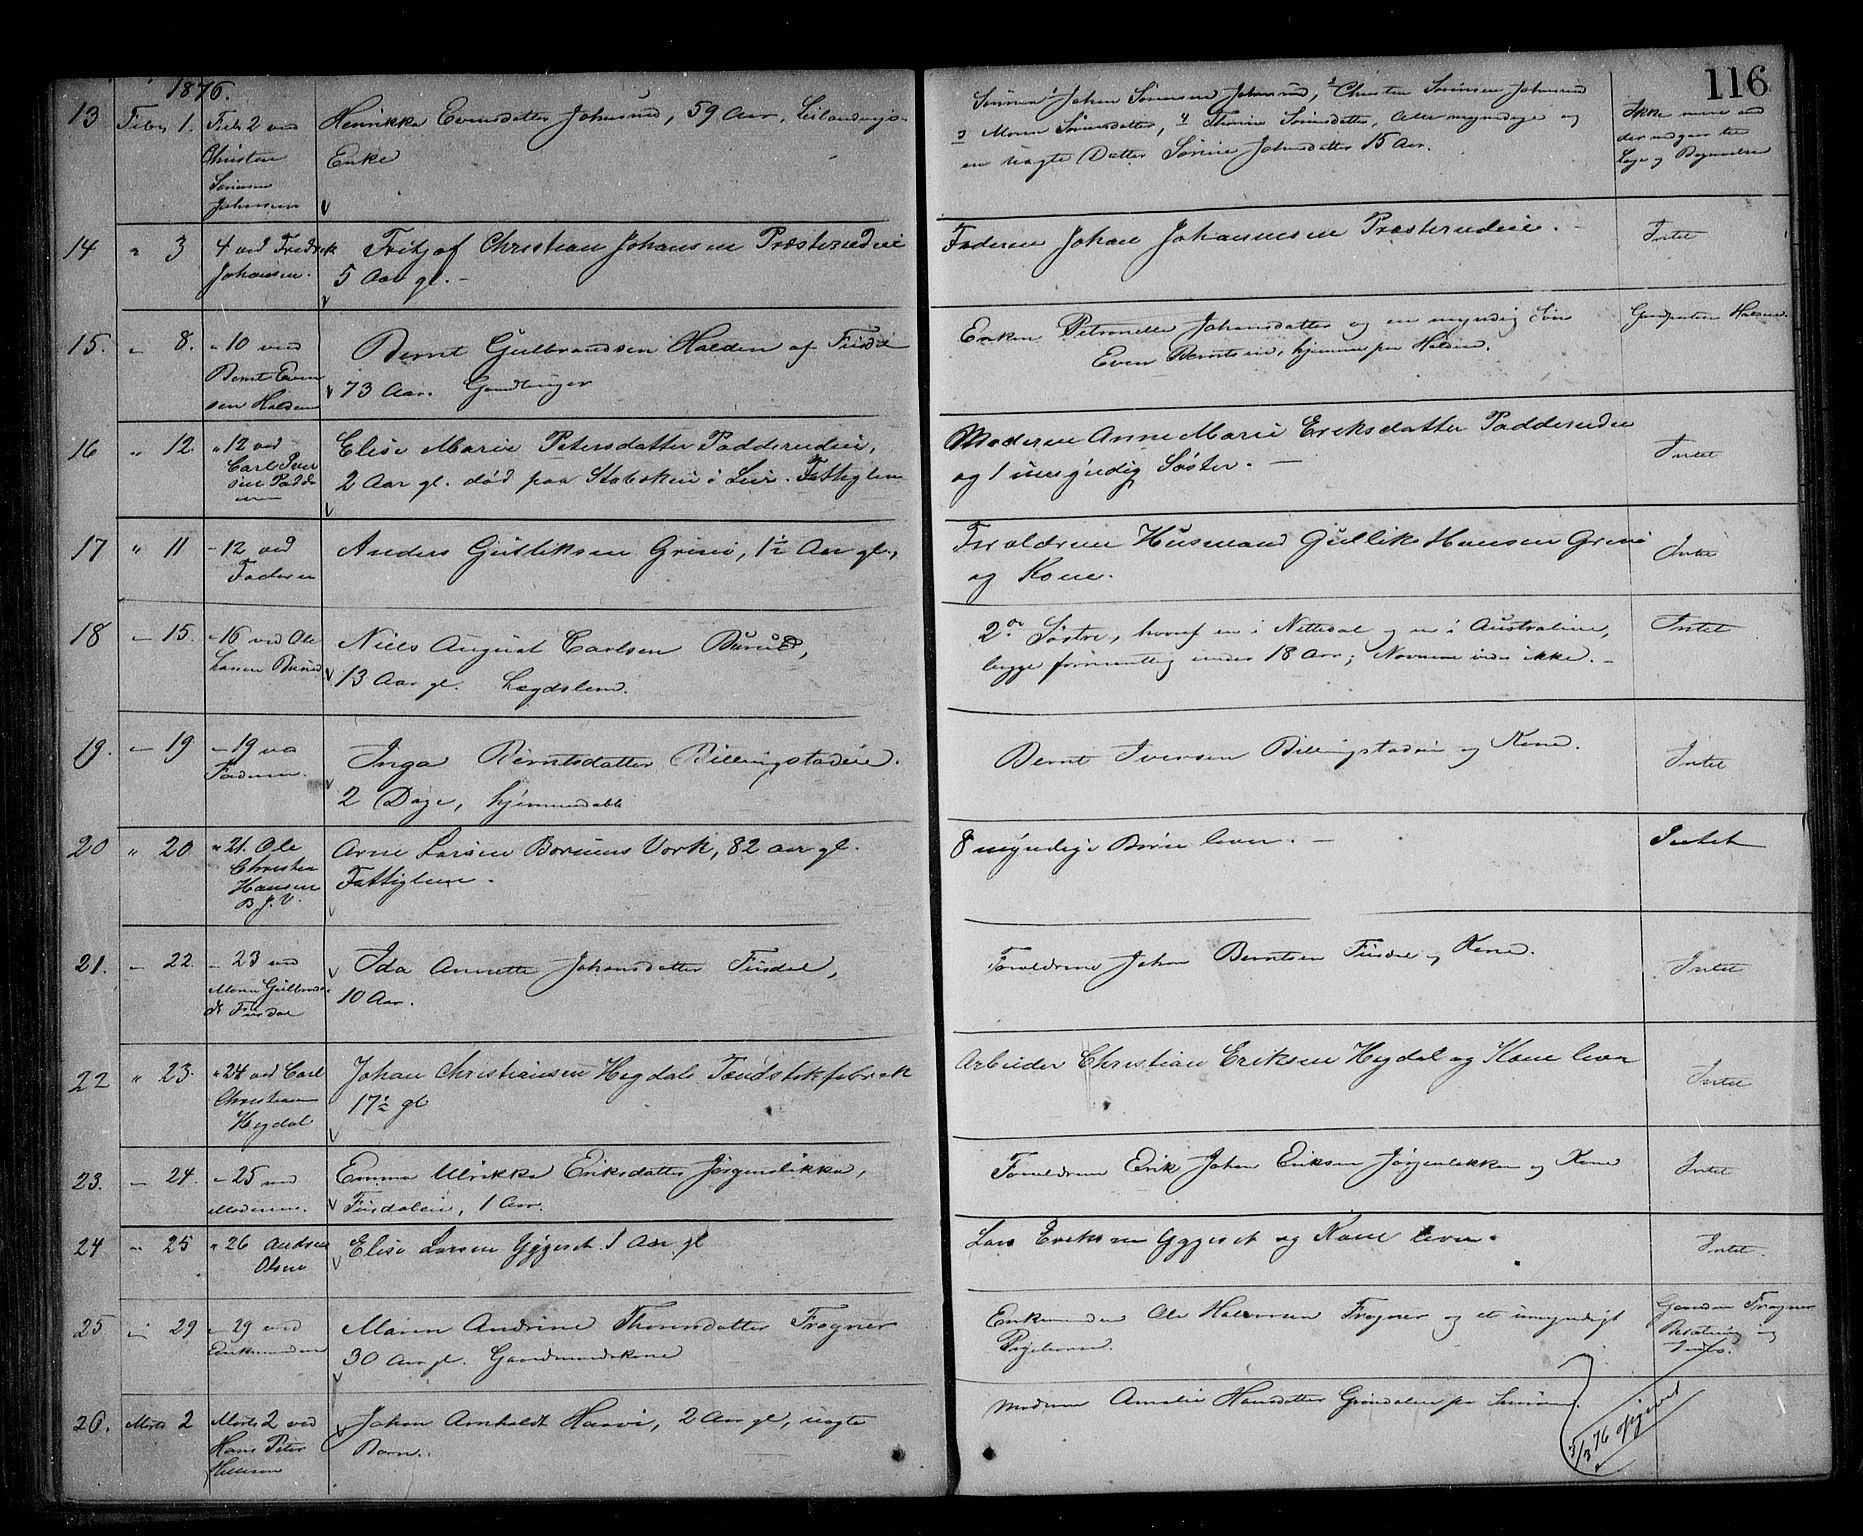 116
1876.
13 Febr 1. Febr 2 ved Christen Sørensen Johnsrud
Henrikka Evensdatter Johnsrud, 59 Aar, Leilændings-
Enke
Sønnen 1 Johan Sørensen Johnsrud, 2 Christen Sørensen Johnsrud
3 Maren Sørensdatter, 4 Thorine Sørensdatter, Alle myndige og
en uægte Datter Sørine Johnsdatter 15 Aar.
Ikke mere end
der udgaar til
Læge og Begravelse
14 " 3 4 ved Fredrik Johansen.
Fritjof Christian Johansen Præsterudeie
5 Aar gl. -
Faderen Johan Johannesen Præsterudeie. -
Intet
15. " 8. " 10 ved Bernt Evensen Halden
Bernt Gulbrandsen Halden af Fusdal
73 Aar. Gaardbruger
Enken Petronelle Johansdatter og en myndig Søn
Even Berntsen, hjemme paa Halden.
Gaardparten Halden.
16 " 12. " 12 ved Carl Iversen Padderud
Elise Marie Petersdatter Padderudeie,
2 Aar gl. død paa Stabækeie i Lier. Fattiglem
Moderen Anne Marie Eriksdatter Padderudeie
og 1 umyndig Søster. -
Intet
17 " 11 - 12 ved Faderen
Anders Gulliksen Grini, 1½ Aar gl.,
Forældrene Husmand Gullik Hansen Grini
og Kone.
Intet
18 - 15. - 16 ved Ole Larsen Burud
Niels August Carlsen Burud,
13 Aar gl. Lægdslem.
2de Søstre, hvoraf en i Nittedal og en i Australien,
begge formentlig under 18 Aar; Navnene vides ikke. -
Intet
19. - 19 - 19 ved Faderen.
Inga Berntsdatter Billingstadeie.
2 Dage, hjemmedøbt
Bernt Iversen Billingstadeie og Kone.
Intet
20 " 20 " 21. Ole Christian Hansen B.J.V.
Arne Larsen Bærums Verk, 82 aar gl.
Fattiglem.
8 myndige Børn lever. -
Intet
21. - 22. - 23 ved Maren Gulbrandsdt Fusdal
Ida Annette Johansdatter Fusdal,
10 Aar.
Forældrene Johan Berntsen Fusdal og Kone.
Intet
22 " 23. " 24 ved Carl Christiansen Hegdal
Johan Christiansen Hegdal Tændstikfabrik
17½ gl
Arbeider Christian Eriksen Hegdal og Kone lever
Intet
23. - 24. - 25 ved Moderen.
Emma Ulrikke Eriksdatter Jørgensløkka,
Fusdaleie, 1 Aar.
Forældrene Erik Johan Eriksen Jørgensløkken og Kone
Intet
24 " 25 " 26 Andreas Olsen
Elise Larsen Gjgjeset 1 Aar gl
Lars Eriksen Gjgjeset og Kone lever.
Intet.
25 - 29 - 29 ved Enkemanden
Maren Andrine Thorsdatter Frogner
30 Aar gl. Gaardmandskone
Enkemanden Ole Halvorsen Frogner og et umyndigt
Pigebarn.
Gaarden Frogner
Besætning og
Indbo.
26. Marts 2 Marts 2 ved Hans Peter Hellesen
Johan Arnholdt Haavi, 2 Aar gl, uægte
Barn.
Moderen Amalie Hansdatter Grøndalen paa
3/3 76 opgivet